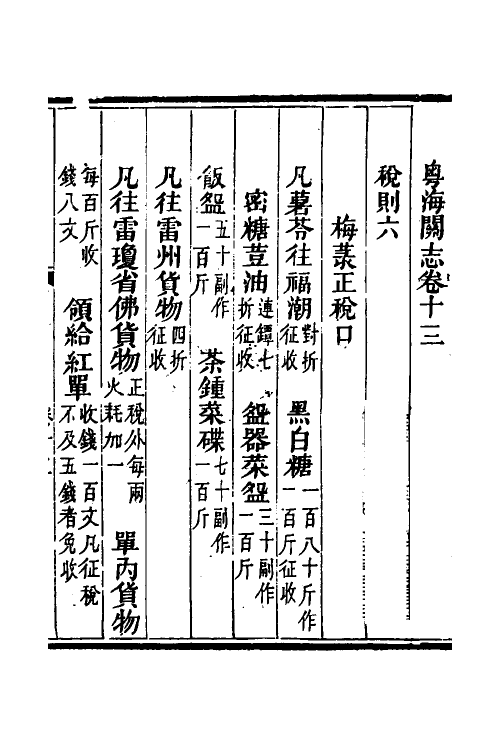 粤海關志卷十三
稅則六
梅菉正稅口
凡薯苓往福潮對折征收 黑白糖一百八十斤作一百斤征收
密糖荳油連鐔七折征收 盌器菜盌三十副作一百斤
飯盌五十副作一百斤 茶鍾菜碟七十副作一百斤
凡往雷州貨物四折征收
凡往雷瓊省佛貨物正稅外每兩火耗加一 單內貨物
每百斤收錢八文 領給紅單收錢一百文凡征稅不及五錢者免收